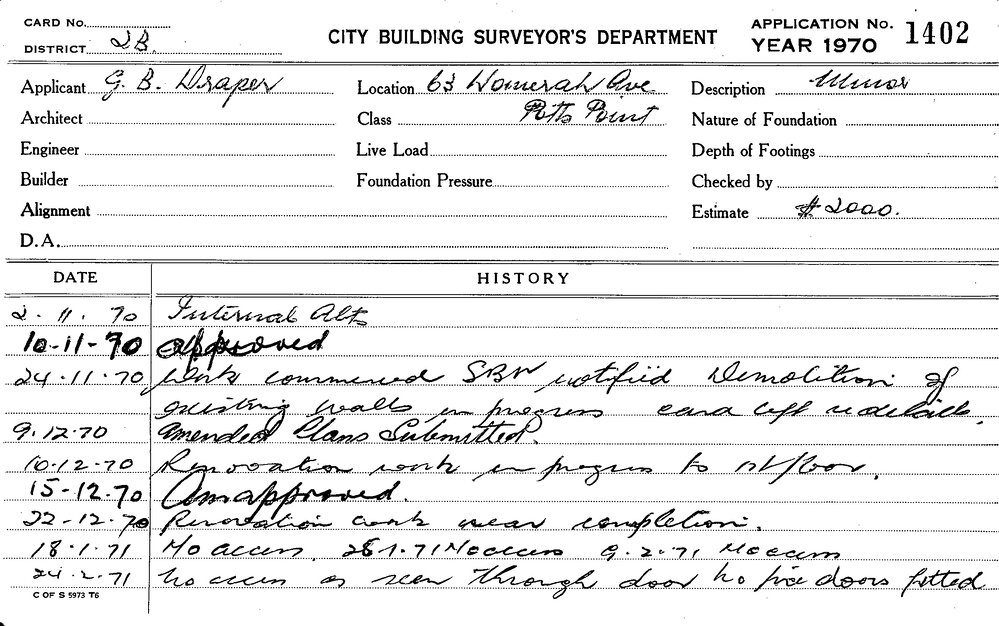 CARD No.
DISTRICT 2B.
CITY BUILDING SURVEYOR'S DEPARTMENT
APPLICATION No. 1402
YEAR 1970
Applicant G. B. Draper Location 63 Womerah Ave Description Minor
Architect Class Potts Point Nature of Foundation
Engineer Live Load Depth of Footings
Builder Foundation Pressure Checked by
Alignment Estimate $2000.
D.A.
DATE HISTORY
2. 11. 70 Internal Alts
10-11-70 approved
24.11.70 Work commenced notified Demolition of
existing walls in progress card left
9.12.70 Amended Plans Submitted.
10.12.70 Renovation work in progress to 1st floor.
15-12.70 Am approved.
22-12.70 Renovation work near completion.
18.1.71 No access. 28.1.71 No access 9.2.71 No access
24.2.71 No access as seen through door no fire doors fitted
C OF S 5973 T6